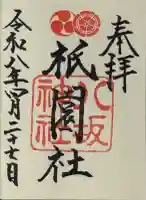 奉拝
八坂神社
祇園社
令和八年四月二十七日